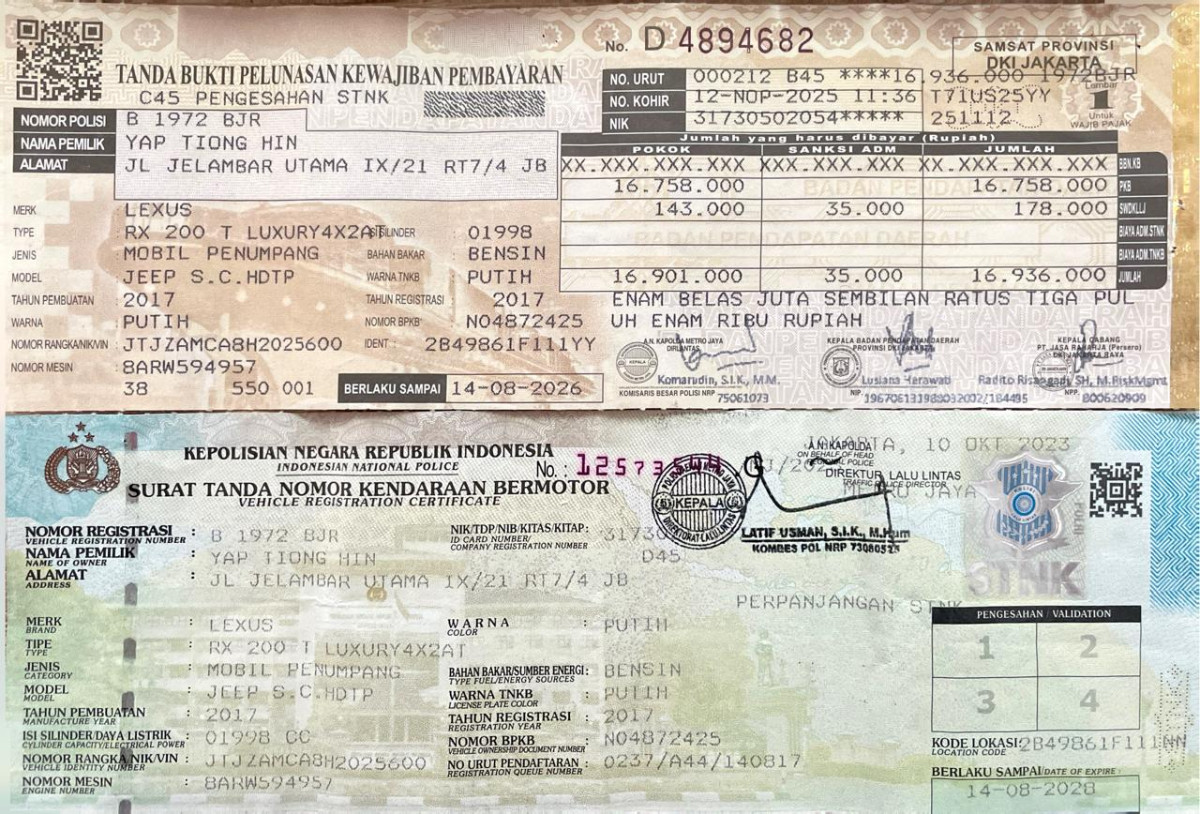 No. D 4894682
SAMSAT PROVINSI
DKI JAKARTA
TANDA BUKTI PELUNASAN KEWAJIBAN PEMBAYARAN
C45 PENGESAHAN STNK
NO. URUT 000212 B45 ****16.936.000 1972BJR
NO. KOHIR 12-NOP-2025 11:36 T71US25YY
NIK 31730502054***** 251112
Lembar
1
Untuk
WAJIB PAJAK
NOMOR POLISI B 1972 BJR
NAMA PEMILIK YAP TIONG HIN
ALAMAT JL JELAMBAR UTAMA IX/21 RT7/4 JB
Jumlah yang harus dibayar (Rupiah)
POKOK SANKSI ADM JUMLAH
XX.XXX.XXX.XXX XXX.XXX.XXX XX.XXX.XXX.XXX BBN.KB
16.758.000 16.758.000 PKB
143.000 35.000 178.000 SWDKLLJ
BIAYA ADM.STNK
BIAYA ADM.TNKB
16.901.000 35.000 16.936.000 JUMLAH
ENAM BELAS JUTA SEMBILAN RATUS TIGA PUL
UH ENAM RIBU RUPIAH
MERK : LEXUS
TYPE : RX 200 T LUXURY4X2AT SILINDER : 01998
JENIS : MOBIL PENUMPANG BAHAN BAKAR : BENSIN
MODEL : JEEP S.C.HDTP WARNA TNKB : PUTIH
TAHUN PEMBUATAN : 2017 TAHUN REGISTRASI : 2017
WARNA : PUTIH NOMOR BPKB : N04872425
NOMOR RANGKA/NIK/VIN : JTJZAMCA8H2025600 IDENT : 2B49861F111YY
NOMOR MESIN : 8ARW594957
38 550 001 BERLAKU SAMPAI 14-08-2026
A.N. KAPOLDA METRO JAYA
DIRLANTAS
KEPALA
Komarudin, S.I.K., M.M.
KOMISARIS BESAR POLISI NRP 75061073
KEPALA BADAN PENDAPATAN DAERAH
PROVINSI DKI JAKARTA
Lusiana Herawati
NIP
KEPALA CABANG
PT. JASA RAHARJA (Persero)
DKI JAKARTA RAYA
Radito Risangadi, SH, M.RiskMgmt
NPP. 800620909
KEPOLISIAN NEGARA REPUBLIK INDONESIA
INDONESIAN NATIONAL POLICE
No. :
SURAT TANDA NOMOR KENDARAAN BERMOTOR
VEHICLE REGISTRATION CERTIFICATE
JAKARTA, 10 OKT 2023
A.N. KAPOLDA
ON BEHALF OF HEAD
DIREKTUR LALU LINTAS
TRAFFIC POLICE DIRECTOR
METRO JAYA
KEPALA
LATIF USMAN, S.I.K., M.Hum
KOMBES POL NRP
STNK
NOMOR REGISTRASI : B 1972 BJR
VEHICLE REGISTRATION NUMBER
NAMA PEMILIK : YAP TIONG HIN
NAME OF OWNER
ALAMAT : JL JELAMBAR UTAMA IX/21 RT7/4 JB
ADDRESS
NIK/TDP/NIB/KITAS/KITAP:
ID CARD NUMBER/
COMPANY REGISTRATION NUMBER
D45
PERPANJANGAN STNK
MERK : LEXUS
BRAND
TIPE : RX 200 T LUXURY4X2AT
TYPE
JENIS : MOBIL PENUMPANG
CATEGORY
MODEL : JEEP S.C.HDTP
MODEL
TAHUN PEMBUATAN : 2017
MANUFACTURE YEAR
ISI SILINDER/DAYA LISTRIK : 01998 CC
CYLINDER CAPACITY/ELECTRICAL POWER
NOMOR RANGKA/NIK/VIN : JTJZAMCA8H2025600
VEHICLE IDENTITY NUMBER
NOMOR MESIN : 8ARW594957
ENGINE NUMBER
WARNA : PUTIH
COLOR
BAHAN BAKAR/SUMBER ENERGI : BENSIN
TYPE FUEL/ENERGY SOURCES
WARNA TNKB : PUTIH
LICENSE PLATE COLOR
TAHUN REGISTRASI : 2017
REGISTRATION YEAR
NOMOR BPKB : N04872425
VEHICLE OWNERSHIP DOCUMENT NUMBER
NO URUT PENDAFTARAN : 0237/A44/140817
REGISTRATION QUEUE NUMBER
PENGESAHAN / VALIDATION
1 2
3 4
KODE LOKASI: 2B49861F111NN
LOCATION CODE
BERLAKU SAMPAI/DATE OF EXPIRE :
14-08-2028